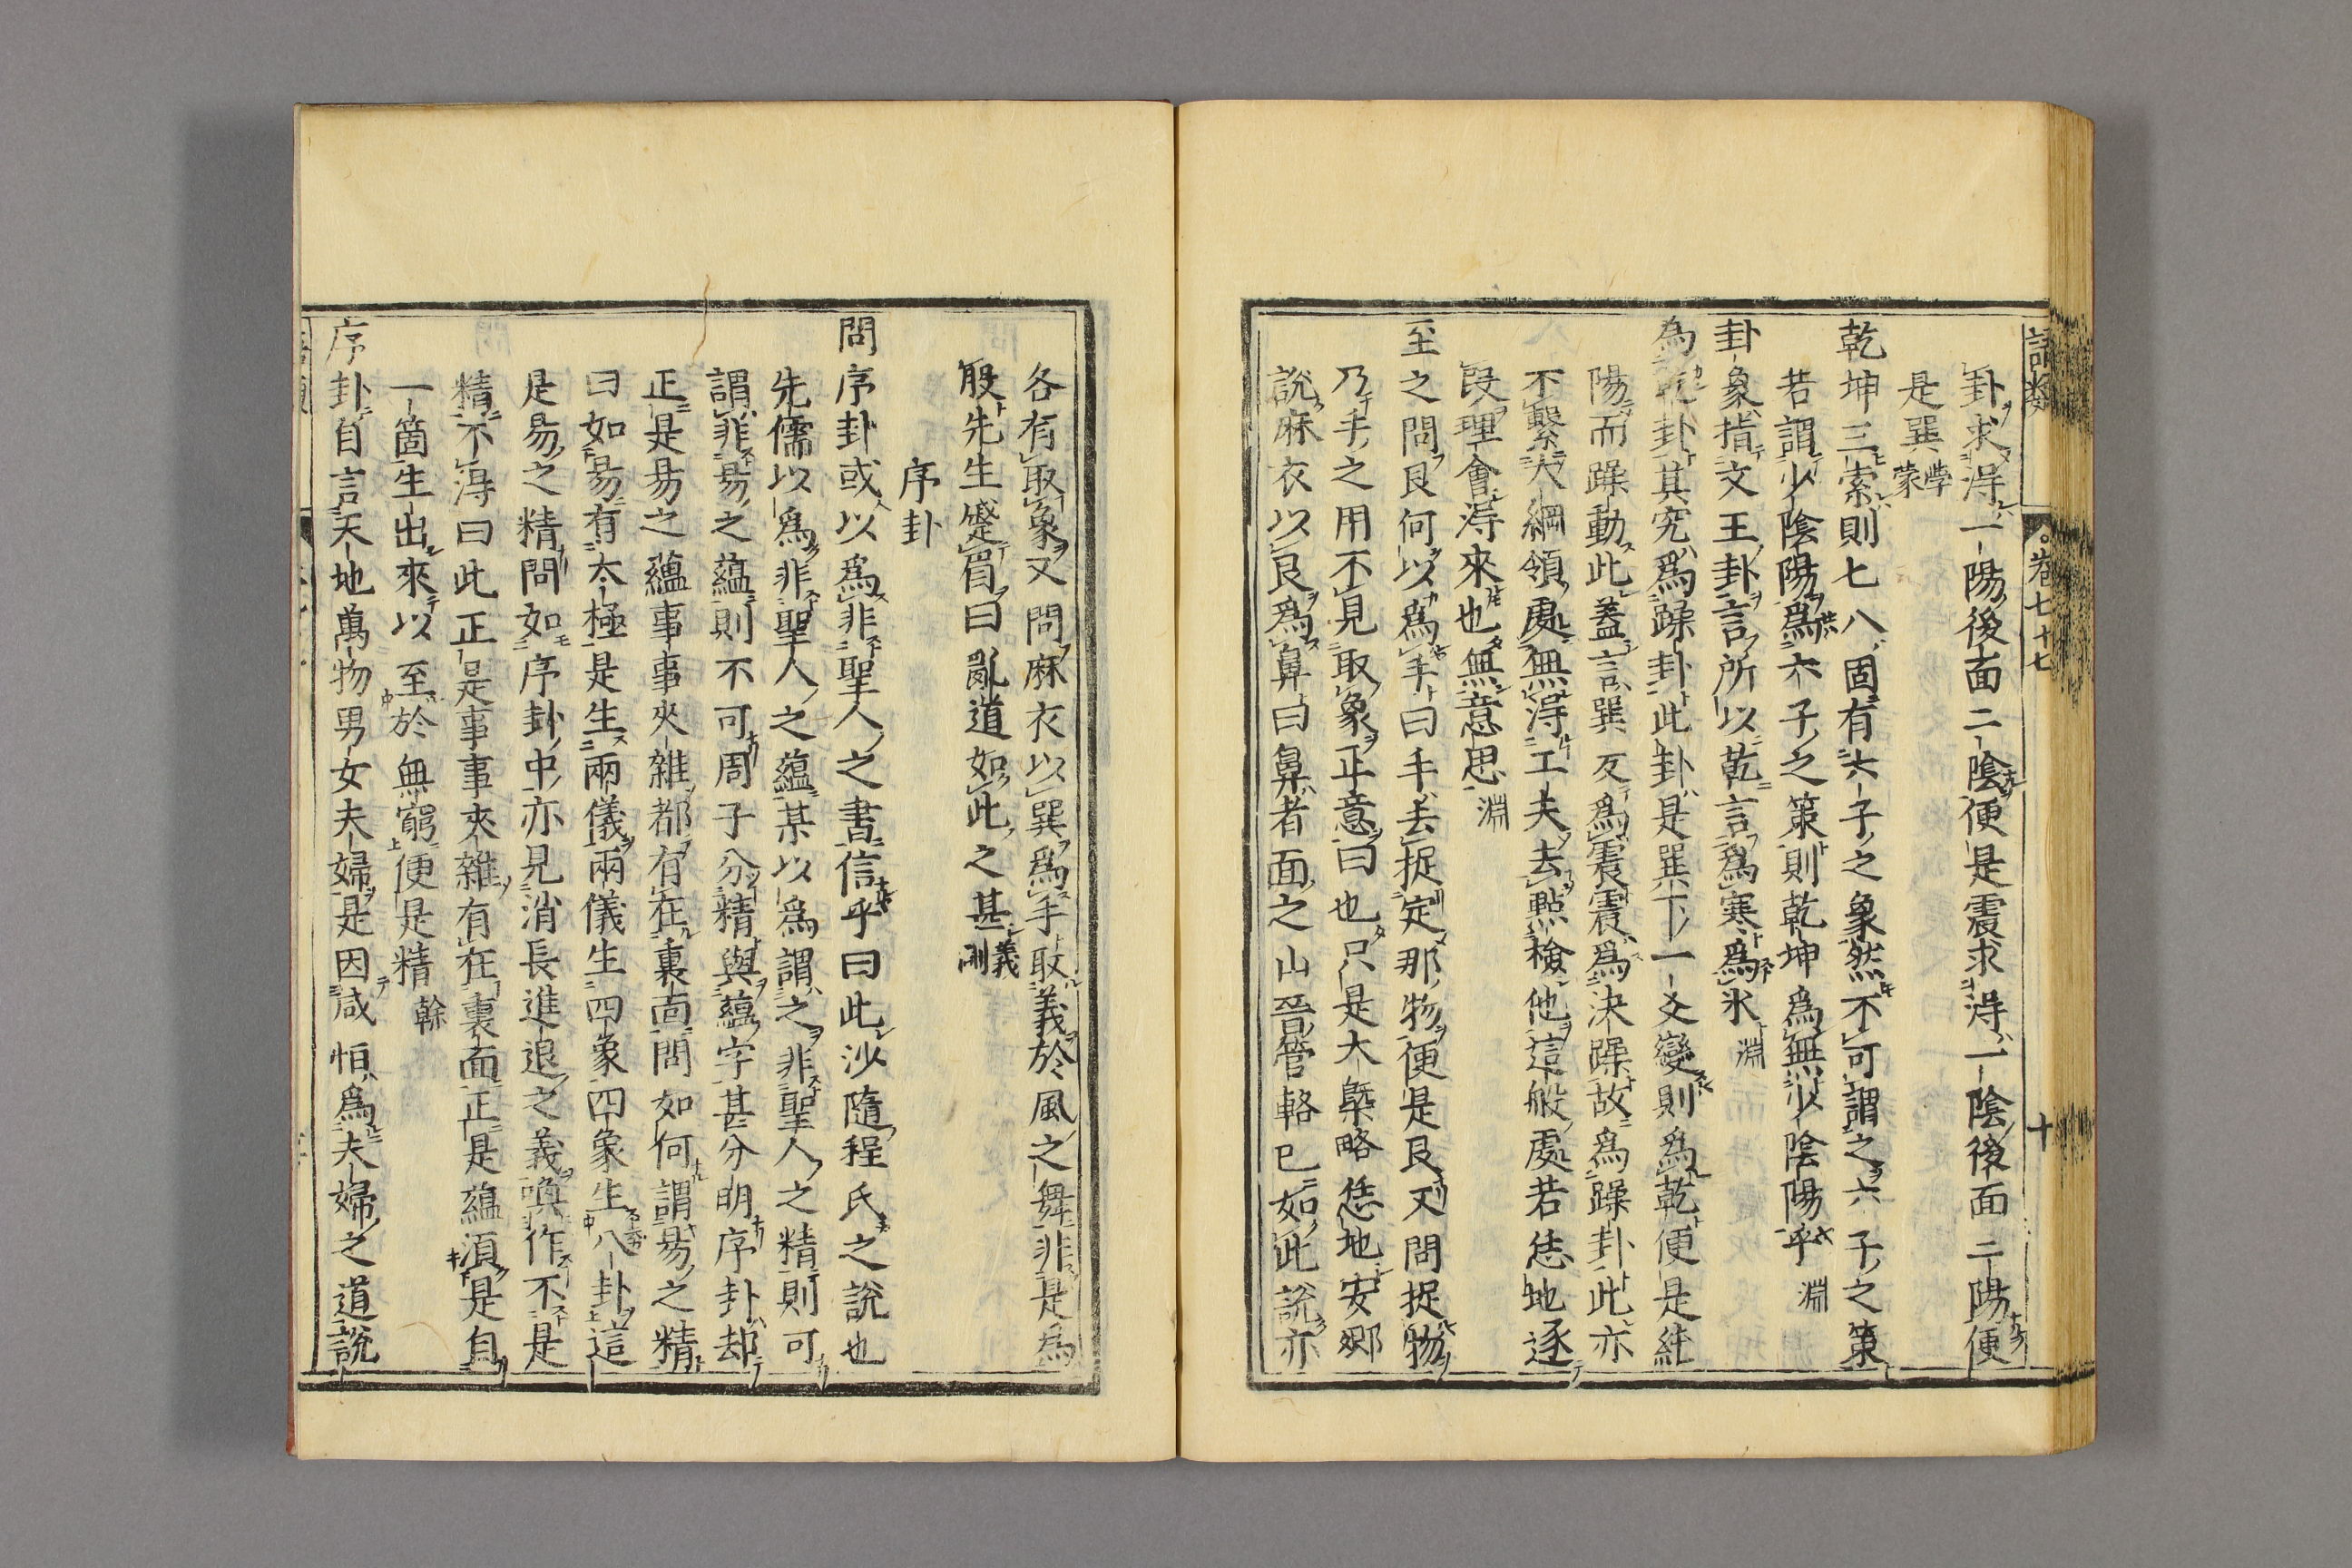 語類 卷七十七 十
卦求得一陽後面二陰便是震求得一陰後面二陽便
是巽學蒙
乾坤三索則七八固有六子之象然不可謂之六子之策
若謂少陰陽為六子之策則乾坤為無少陰陽乎淵
卦象指文王卦言所以乾言為寒為氷淵
為乾卦其究為躁卦此卦是巽下一爻變則為乾便是純
陽而躁動此蓋言巽反為震震為決躁故為躁卦此亦
不繫大綱領處無得工夫去點檢他這般處若恁地逐
段理會得來也無意思淵
至之問艮何以為手曰手去捉定那物便是艮又問捉物
乃手之用不見取象正意曰也只是大槩略恁地安卿
說麻衣以艮為鼻曰鼻者面之山晉管輅已如此說亦
各有取象又問麻衣以巽為手取義於風之舞非是為
股先生蹙眉曰亂道如此之甚義剛
序卦
問序卦或以為非聖人之書信乎曰此沙隨程氏之說也
先儒以為非聖人之蘊某以為謂之非聖人之精則可
謂非易之蘊則不可周子分精與蘊字甚分明序卦却
正是易之蘊事事夾雜都有在裏面問如何謂易之精
曰如易有太極是生兩儀兩儀生四象四象生八卦這
是易之精問如序卦中亦見消長進退之義喚作不是
精不得曰此正是事事夾雜有在裏面正是蘊須是自
一箇生出來以至於無窮便是精榦
序卦自言天地萬物男女夫婦是因咸恒為夫婦之道說